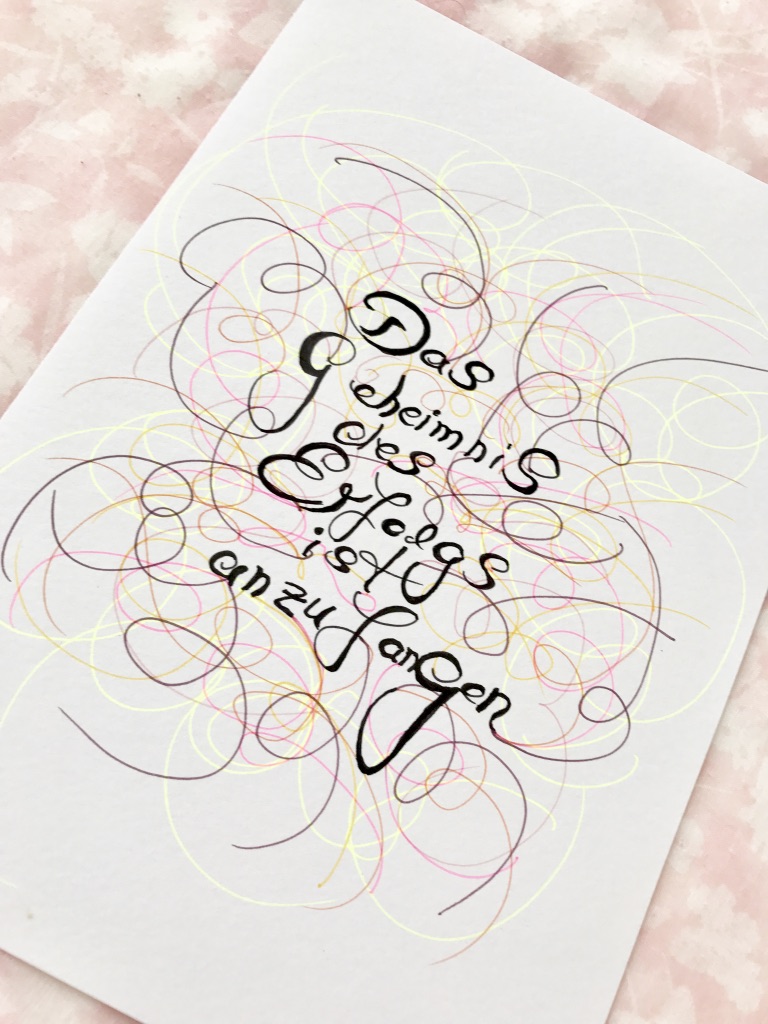 Das
Geheimnis
des
Erfolgs
ist
anzufangen